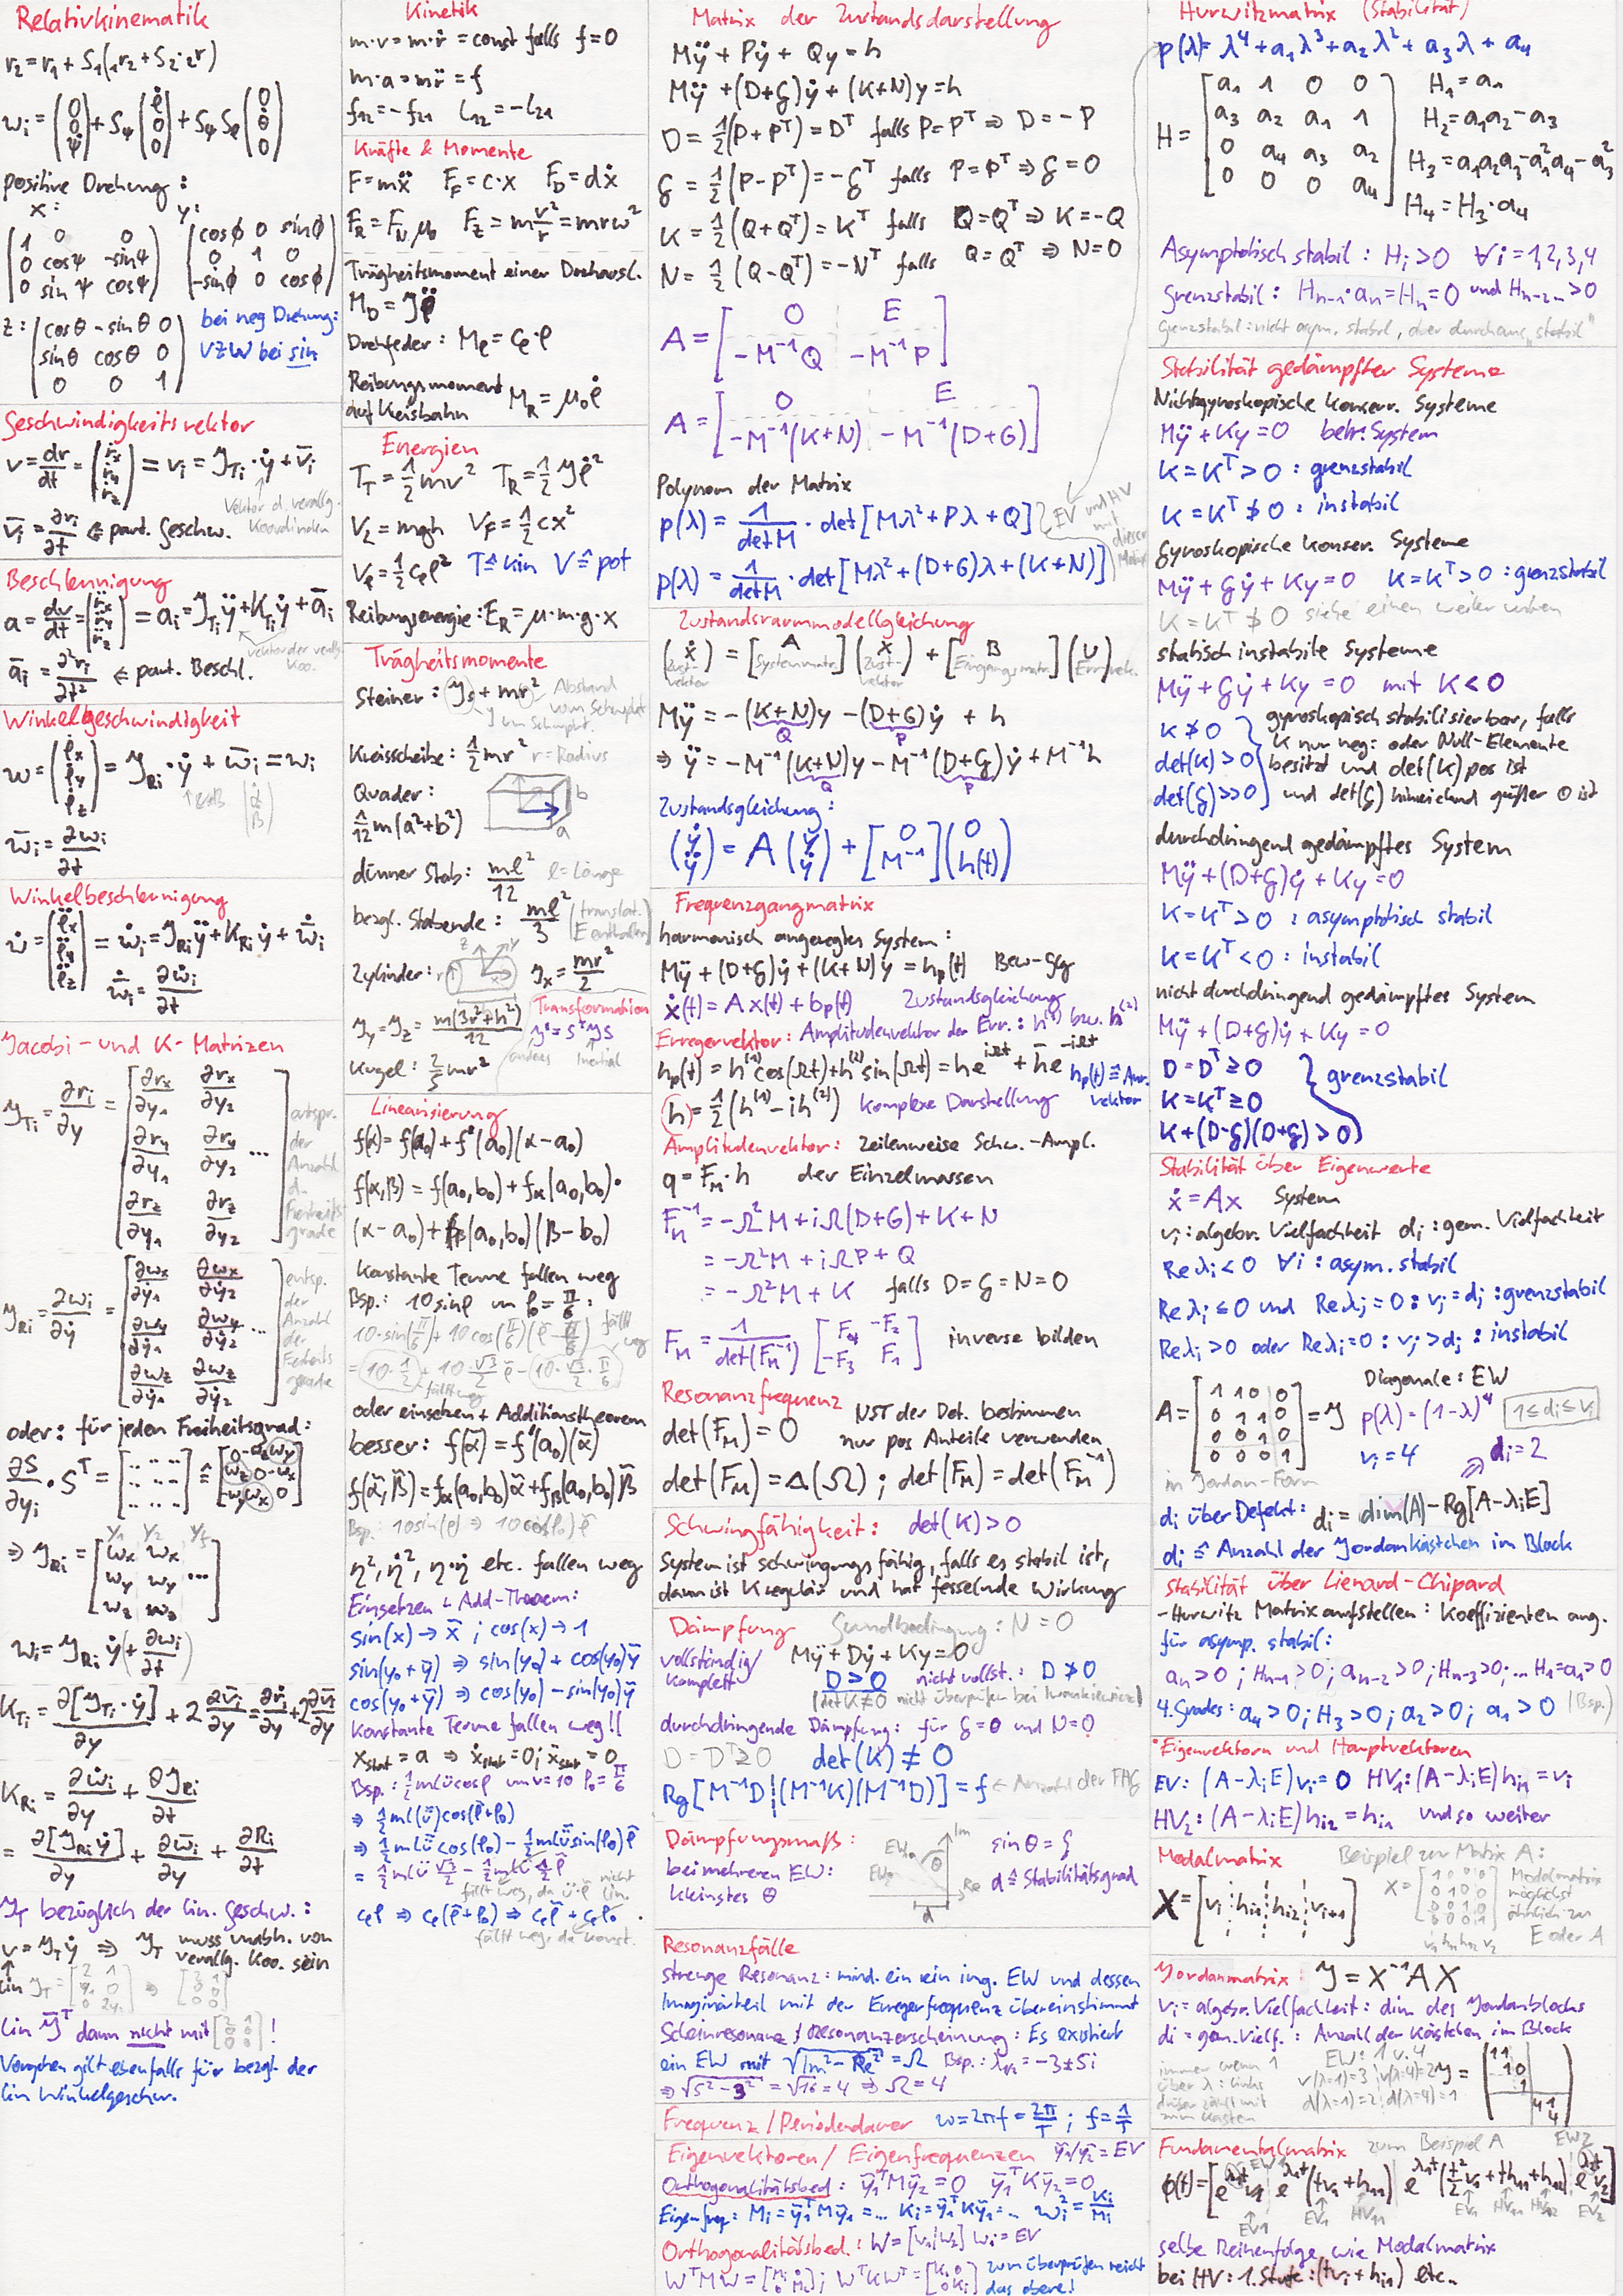 Relativkinematik
r₂ = r₁ + S₁(₁r₂ + S₂·₂r)
ωᵢ = (0 0 ψ̇) + Sψ (φ̇ 0 0) + Sψ Sφ (0 θ̇ 0)
positive Drehung:
x: y:
(1 0 0 / 0 cosψ -sinψ / 0 sinψ cosψ) (cosϕ 0 sinϕ / 0 1 0 / -sinϕ 0 cosϕ)
z: (cosθ -sinθ 0 / sinθ cosθ 0 / 0 0 1) bei neg Drehung:
VZW bei sin
Geschwindigkeitsvektor
v = dr/dt = (ṙx ṙy ṙz) = vᵢ = J_Ti · ẏ + v̄ᵢ
Vektor d. verallg.
Koordinaten
v̄ᵢ = ∂rᵢ/∂t ⇐ part. Geschw.
Beschleunigung
a = dv/dt = (r̈x r̈y r̈z) = aᵢ = J_Ti ÿ + K_Ti ẏ + āᵢ
Vektor der verallg.
Koo.
āᵢ = ∂²rᵢ/∂t² ⇐ part. Beschl.
Winkelgeschwindigkeit
ω = (φ̇x φ̇y φ̇z) = J_Ri · ẏ + ω̄ᵢ = ωᵢ
ω̄ᵢ = ∂ωᵢ/∂t
Winkelbeschleunigung
ω̇ = (φ̈x φ̈y φ̈z) = ω̇ᵢ = J_Ri ÿ + K_Ri ẏ + ω̄̇ᵢ
ω̄̇ᵢ = ∂ω̇ᵢ/∂t
Jacobi- und K-Matrizen
J_Ti = ∂rᵢ/∂y = [∂rx/∂y₁ ∂rx/∂y₂ / ∂ry/∂y₁ ∂ry/∂y₂ ... / ∂rz/∂y₁ ∂rz/∂y₂]
entspr.
der
Anzahl
d.
Freiheits
grade
J_Ri = ∂ωᵢ/∂ẏ = [∂ωx/∂ẏ₁ ∂ωx/∂ẏ₂ / ∂ωy/∂ẏ₁ ∂ωy/∂ẏ₂ ... / ∂ωz/∂ẏ₁ ∂ωz/∂ẏ₂]
entsp.
der
Anzahl
der
Freiheits
grade
oder: für jeden Freiheitsgrad:
∂S/∂yᵢ · Sᵀ = [.. .. ..] ≙ [0 -ωz ωy / ωz 0 -ωx / -ωy ωx 0]
y₁ y₂ yf
⇒ J_Ri = [ωx ωx / ωy ωy ... / ωz ωz]
ωᵢ = J_Ri ẏ (+ ∂ωᵢ/∂t)
K_Ti = ∂[J_Ti · ẏ]/∂y + 2 ∂v̄ᵢ/∂y = ∂ṙᵢ/∂y + 2 ∂v̄ᵢ/∂y
K_Ri = ∂ω̇ᵢ/∂ẏ + ∂J_Ri/∂t
= ∂[J_Ri ẏ]/∂y + ∂ω̄ᵢ/∂y + ∂Rᵢ/∂t
J_T bezüglich der lin. Geschw.:
v = J_T ẏ ⇒ J_T muss unabh. von
verallg. Koo. sein
lin J_T = [2 1 / y₁ 0 / 0 2y₁] ⇒ [2 1 / 0 0 / 0 0]
lin J̄ᵀ dann nicht mit [2 1 / 0 0 / 0 0]!
Vorgehen gilt ebenfalls für bezgl. der
lin Winkelgeschw.
Kinetik
m·v = m·ṙ = const falls f=0
m·a = m r̈ = f
f₁₂ = -f₂₁ l₁₂ = -l₂₁
Kräfte & Momente
F = mẍ F_F = c·x F_D = dẋ
F_R = F_N μ₀ F_Z = m v²/r = mrω²
Trägheitsmoment einer Drehausl.
M_D = Jφ̈
Drehfeder: Mφ = cφ·φ
Reibungsmoment
auf Kreisbahn M_R = μ₀φ̇
Energien
T_T = ½mv² T_R = ½Jφ̇²
V_Z = mgh V_F = ½cx²
Vφ = ½cφφ² T≙kin V≙pot
Reibungsenergie: E_R = μ·m·g·x
Trägheitsmomente
Steiner: J_S + mr² Abstand
vom Schwpkt
J um Schwpkt.
Kreisscheibe: ½mr² r=Radius
Quader:
1/12 m(a²+b²)
b
a
dünner Stab: ml²/12 l=Länge
bezgl. Stabende: ml²/3 (translat. E enthalten)
Zylinder: r z y x J_x = mr²/2
J_y = J_z = m(3r²+h²)/12
Transformation
J' = SᵀJS
anderes Inertial
Kugel: 2/5 mr²
Linearisierung
f(α) = f(a₀) + f'(a₀)(α-a₀)
f(α,β) = f(a₀,b₀) + fα(a₀,b₀)·
(α-a₀) + fβ(a₀,b₀)(β-b₀)
Konstante Terme fallen weg
Bsp.: 10 sinφ um φ₀ = π/6:
10·sin(π/6) + 10cos(π/6)(φ̄ - π/6) fällt weg
= 10·½ + 10·√3/2 φ̄ - 10·√3/2·π/6
fällt weg
oder einsetzen + Additionstheorem
besser: f(ᾱ) = f'(a₀)(ᾱ)
f(ᾱ,β̄) = fα(a₀,b₀)ᾱ + fβ(a₀,b₀)β̄
Bsp.: 10sin(φ) ⇒ 10cos(φ₀)φ̄
η², η̇², η·η̇ etc. fallen weg
Einsetzen + Add-Theorem:
sin(x) → x̄ ; cos(x) → 1
sin(y₀+ȳ) ⇒ sin(y₀) + cos(y₀)ȳ
cos(y₀+ȳ) ⇒ cos(y₀) - sin(y₀)ȳ
Konstante Terme fallen weg!!
x_stat = a ⇒ ẋ_stat = 0; ẍ_stat = 0
Bsp.: ½mlücosφ um v=10 φ₀ = π/6
⇒ ½ml(ü)cos(φ̄+φ₀)
⇒ ½mlü cos(φ₀) - ½mlü sin(φ₀)φ̄
= ½mlü √3/2 - ½mlü ½φ̄
fällt weg, da ü·φ nicht lin.
cφφ ⇒ cφ(φ̄+φ₀) ⇒ cφφ̄ + cφφ₀
fällt weg, da konst.
Matrix der Zustandsdarstellung
Mÿ + Pẏ + Qy = h
Mÿ + (D+G)ẏ + (K+N)y = h
D = ½(P+Pᵀ) = Dᵀ falls P=Pᵀ ⇒ D = -P
G = ½(P-Pᵀ) = -Gᵀ falls P=Pᵀ ⇒ G = 0
K = ½(Q+Qᵀ) = Kᵀ falls Q=Qᵀ ⇒ K = -Q
N = ½(Q-Qᵀ) = -Nᵀ falls Q=Qᵀ ⇒ N=0
A = [0 E / -M⁻¹Q -M⁻¹P]
A = [0 E / -M⁻¹(K+N) -M⁻¹(D+G)]
Polynom der Matrix
p(λ) = 1/detM · det[Mλ²+Pλ+Q]
p(λ) = 1/detM · det[Mλ²+(D+G)λ+(K+N)]
EV und HV
mit
dieser
Matrix
Zustandsraummodellgleichung
(ẋ Zust-vektor) = [A Systemmatr.] (x Zust-vektor) + [B Eingangsmatr.] (u Errvek.)
Mÿ = -(K+N)y - (D+G)ẏ + h
Q P
⇒ ÿ = -M⁻¹(K+N)y - M⁻¹(D+G)ẏ + M⁻¹h
Q P
Zustandsgleichung:
(ẏ ÿ) = A (y ẏ) + [0 M⁻¹] (0 h(t))
Frequenzgangmatrix
harmonisch angeregtes System:
Mÿ + (D+G)ẏ + (K+N)y = hp(t) Bew-Glg
ẋ(t) = Ax(t) + bp(t) Zustandsgleichung
Erregervektor: Amplitudenvektor der Err.: h⁽¹⁾ bzw. h⁽²⁾
hp(t) = h⁽¹⁾cos(Ωt) + h⁽²⁾sin(Ωt) = he^{iΩt} + h̄e^{-iΩt} hp(t) ≙ Anr.
vektor
h = ½(h⁽¹⁾ - ih⁽²⁾) komplexe Darstellung
Amplitudenvektor: zeilenweise Schw.-Ampl.
q = F_M · h der Einzelmassen
F_M⁻¹ = -Ω²M + iΩ(D+G) + K+N
= -Ω²M + iΩP + Q
= -Ω²M + K falls D=G=N=0
F_M = 1/det(F_M⁻¹) [F₄ -F₂ / -F₃ F₁] inverse bilden
Resonanzfrequenz NST der Det. bestimmen
det(F_M) = 0 nur pos Anteile verwenden
det(F_M) = Δ(Ω) ; det(F_M) = det(F_M⁻¹)
Schwingfähigkeit: det(K) > 0
System ist schwingungsfähig, falls es stabil ist,
dann ist K regulär und hat fesselnde Wirkung
Dämpfung Grundbedingung: N = 0
vollständig/
komplett Mÿ + Dẏ + Ky = 0
D > 0 nicht vollst.: D ≯ 0
durchdringende Dämpfung: für G=0 und N=0
D = Dᵀ ≥ 0 det(K) ≠ 0
Rg[M⁻¹D ¦ (M⁻¹K)(M⁻¹D)] = f ← Anzahl der FHG
Dämpfungsmaß: EW Im θ Re d sin θ = ξ
bei mehreren EW: d ≙ Stabilitätsgrad
kleinstes θ
Resonanzfälle
strenge Resonanz: mind. ein rein img. EW und dessen
Imaginärteil mit der Erregerfrequenz übereinstimmt
Scheinresonanz / Resonanzerscheinung: Es existiert
ein EW mit √(Im²-Re²) = Ω Bsp.: λ₁,₂ = -3±5i
⇒ √(5²-3²) = √16 = 4 ⇒ Ω = 4
Frequenz / Periodendauer ω = 2πf = 2π/T ; f = 1/T
Eigenvektoren / Eigenfrequenzen ỹ₁/ỹ₂ = EV
Orthogonalitätsbed: ỹ₁ᵀMỹ₂ = 0 ỹ₁ᵀKỹ₂ = 0
Eigenfreq: Mᵢ = ỹ₁ᵀMỹ₁ = ... Kᵢ = ỹ₁ᵀKỹ₁ = ... ωᵢ² = Kᵢ/Mᵢ
Orthogonalitätsbed.: W = [w₁|w₂] wᵢ = EV
WᵀMW = [M₁ 0 / 0 M₂] ; WᵀKWᵀ = [K₁ 0 / 0 Kᵢ] zum überprüfen reicht
das obere!
Hurwitzmatrix (Stabilität)
p(λ) = λ⁴ + a₁λ³ + a₂λ² + a₃λ + a₄
H = [a₁ 1 0 0 / a₃ a₂ a₁ 1 / 0 a₄ a₃ a₂ / 0 0 0 a₄]
H₁ = a₁
H₂ = a₁a₂ - a₃
H₃ = a₁a₂a₃ - a₁²a₄ - a₃²
H₄ = H₃·a₄
Asymptotisch stabil: Hᵢ > 0 ∀i = 1,2,3,4
grenzstabil: H_{n-1}·a_n = H_n = 0 und H_{n-2...} > 0
Grenzstabil: nicht asym. stabil, aber durchaus „stabil"
Stabilität gedämpfter Systeme
Nichtgyroskopische konserv. Systeme
Mÿ + Ky = 0 betr. System
K = Kᵀ > 0 : grenzstabil
K = Kᵀ ≯ 0 : instabil
Gyroskopische konser. Systeme
Mÿ + Gẏ + Ky = 0 K = Kᵀ > 0 : grenzstabil
K = Kᵀ ≯ 0 siehe einen weiter unten
statisch instabile Systeme
Mÿ + Gẏ + Ky = 0 mit K < 0
K ≯ 0 gyroskopisch stabilisierbar, falls
K nur neg. oder Null-Elemente
det(K) > 0 besitzt und det(K) pos ist
det(G) >> 0 und det(G) hinreichend größer 0 ist
durchdringend gedämpftes System
Mÿ + (D+G)ẏ + Ky = 0
K = Kᵀ > 0 : asymptotisch stabil
K = Kᵀ < 0 : instabil
nicht durchdringend gedämpftes System
Mÿ + (D+G)ẏ + Ky = 0
D = Dᵀ ≥ 0
K = Kᵀ ≥ 0 grenzstabil
K + (D-G)(D+G) > 0
Stabilität über Eigenwerte
ẋ = Ax System
vᵢ: algebr. Vielfachheit dᵢ: geom. Vielfachheit
Re λᵢ < 0 ∀i : asym. stabil
Re λᵢ ≤ 0 und Re λⱼ = 0 : vⱼ = dⱼ : grenzstabil
Re λᵢ > 0 oder Re λᵢ = 0 : vⱼ > dⱼ : instabil
A = [1 1 0 0 / 0 1 1 0 / 0 0 1 0 / 0 0 0 1] = J
Diagonale: EW
p(λ) = (1-λ)⁴ 1 ≤ dᵢ ≤ vᵢ
vᵢ = 4 ⇒ dᵢ = 2
in Jordan-Form
dᵢ über Defekt: dᵢ = dim(A) - Rg[A-λᵢE]
dᵢ ≙ Anzahl der Jordankästchen im Block
Stabilität über Lienard-Chipard
- Hurwitz Matrix aufstellen: Koeffizienten ang.
für asymp. stabil:
a_n > 0 ; H_{n-1} > 0 ; a_{n-2} > 0 ; H_{n-3} > 0 ; ... H₁ = a₁ > 0
4. Grades: a₄ > 0 ; H₃ > 0 ; a₂ > 0 ; a₁ > 0 (Bsp.)
Eigenvektoren und Hauptvektoren
EV: (A-λᵢE)vᵢ = 0 HV₁: (A-λᵢE)hᵢ₁ = vᵢ
HV₂: (A-λᵢE)hᵢ₂ = hᵢ₁ und so weiter
Modalmatrix Beispiel zur Matrix A:
X = [vᵢ ¦ hᵢ₁ ¦ hᵢ₂ ¦ vᵢ₊₁]
X = [1 0 0 0 / 0 1 0 0 / 0 0 1 0 / 0 0 0 1]
v₁ h₁₁ h₁₂ v₂
Modalmatrix
möglichst
ähnlich zu
E oder A
Jordanmatrix: J = X⁻¹AX
vᵢ = algebr. Vielfachheit: dim des Jordanblocks
dᵢ = geom. Vielf.: Anzahl der Kästchen im Block
immer wenn 1
über λ: links
EW: 1 v. 4
v(λ=1)=3 ; v(λ=4)=2
d(λ=1)=2 ; d(λ=4)=1
J = [1 1 / 1 0 / 1 / 4 1 / 4]
Fundamentalmatrix zum Beispiel A
EW1 EW2
ϕ(t) = [e^{λ₁t}v₁ ¦ e^{λ₁t}(tv₁+h₁₁) ¦ e^{λ₁t}(t²/2 v₁+th₁₁+h₁₂) ¦ e^{λ₂t}v₂]
EV1 EV₁ HV₁₁ EV₁ HV₁₁ HV₁₂ EV₂
selbe Reihenfolge wie Modalmatrix
bei HV: 1. Stufe: (tvᵢ+hᵢ₁) etc.